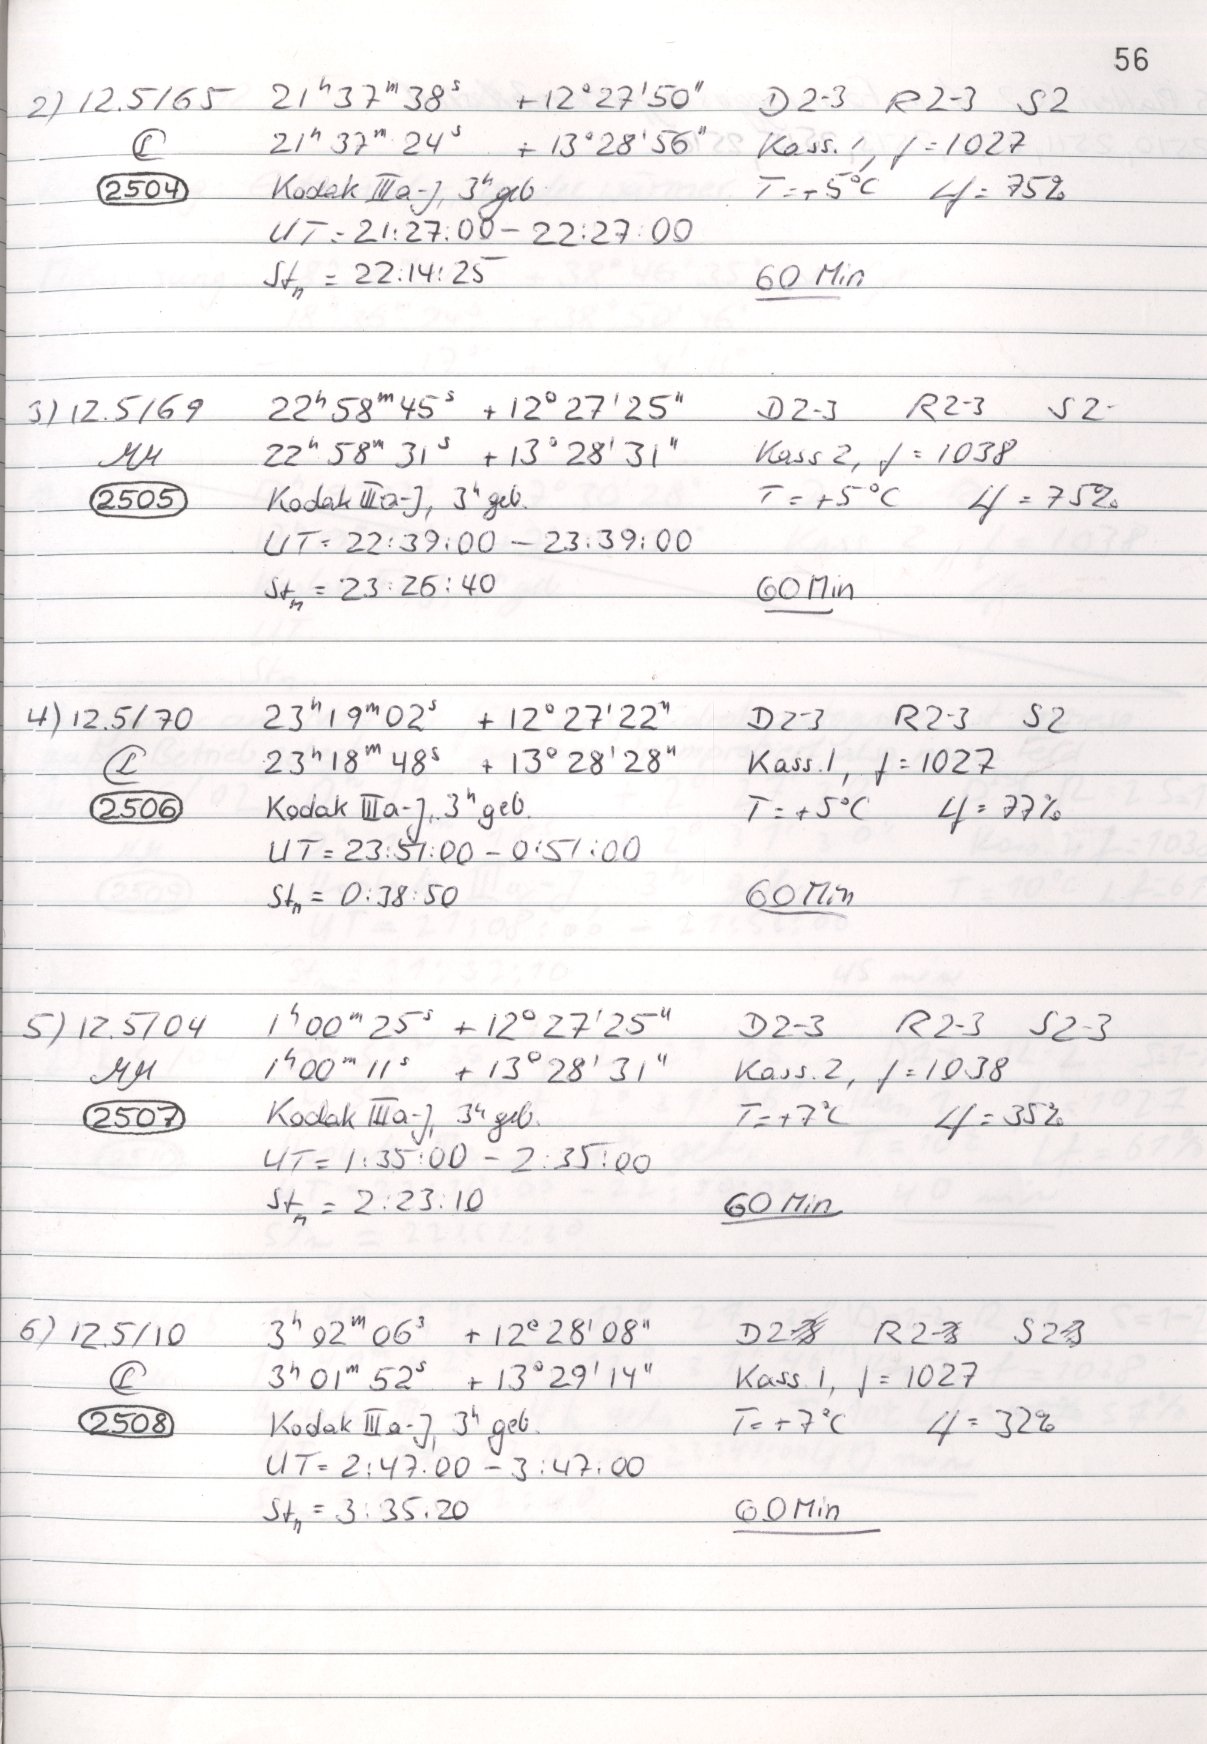 56
2) 12.5/65 21ʰ37ᵐ38ˢ +12°27'50" D2-3 R2-3 S2
21ʰ37ᵐ24ˢ +13°28'56" Kass. 1, f=1027
2504 Kodak IIIa-J, 3ʰ geb. T=+5°C Lf=75%
UT=21:27:00-22:27:00
Stn = 22:14:25 60 Min
3) 12.5/69 22ʰ58ᵐ45ˢ +12°27'25" D2-3 R2-3 S2-
MM 22ʰ58ᵐ31ˢ +13°28'31" Kass 2, f=1038
2505 Kodak IIIa-J, 3ʰ geb. T=+5°C Lf=75%
UT=22:39:00-23:39:00
Stn = 23:26:40 60 Min
4) 12.5/70 23ʰ19ᵐ02ˢ +12°27'22" D2-3 R2-3 S2
23ʰ18ᵐ48ˢ +13°28'28" Kass. 1, f=1027
2506 Kodak IIIa-J, 3ʰ geb. T=+5°C Lf=77%
UT=23:51:00-0:51:00
Stn = 0:38:50 60 Min
5) 12.5/04 1ʰ00ᵐ25ˢ +12°27'25" D2-3 R2-3 S2-3
MM 1ʰ00ᵐ11ˢ +13°28'31" Kass. 2, f=1038
2507 Kodak IIIa-J, 3ʰ geb. T=+7°C Lf=35%
UT=1:35:00-2:35:00
Stn = 2:23:10 60 Min
6) 12.5/10 3ʰ02ᵐ06ˢ +12°28'08" D2 R2 S2
3ʰ01ᵐ52ˢ +13°29'14" Kass. 1, f=1027
2508 Kodak IIIa-J, 3ʰ geb. T=+7°C Lf=32%
UT=2:47:00-3:47:00
Stn = 3:35.20 60 Min